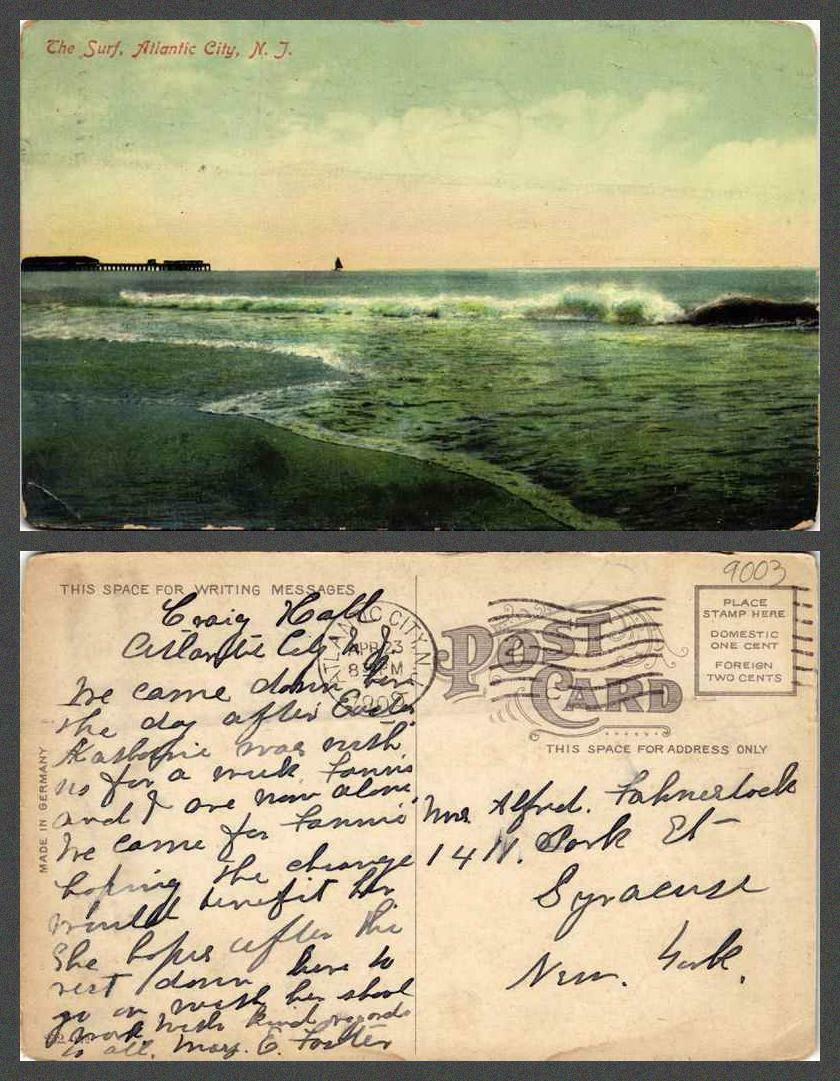 The Surf, Atlantic City, N. J.
9003
THIS SPACE FOR WRITING MESSAGES
Craig Hall
Atlantic City N J
We came down here
the day after Easter
Katherine was with
us for a week. Fannie
and I are now alone
We came for Fannie
hoping the change
would benefit her
She hopes after this
rest down here to
go on with her school
work with kind regards
to all. Mary. E. Foster
MADE IN GERMANY
ATLANTIC CITY, N.J.
APR 23
8 PM
POST CARD
PLACE
STAMP HERE
DOMESTIC
ONE CENT
FOREIGN
TWO CENTS
THIS SPACE FOR ADDRESS ONLY
Mrs Alfred. Fahnerstock
14 N. Park St
Syracuse
New. York.